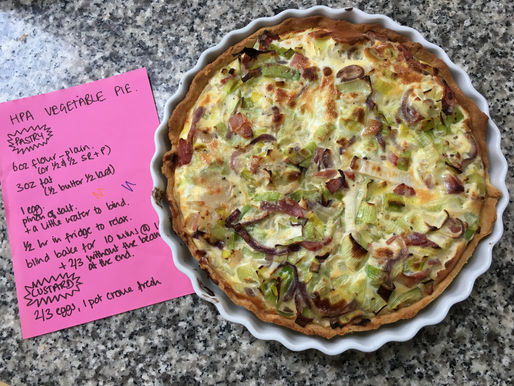 HPA VEGETABLE PIE.
PASTRY
6oz flour plain.
(or 1/2 & 1/2 SR+P)
3oz fat
(1/2 butter 1/2 lard)
1 egg
pinch of salt.
+ a little water to bind.
1/2 hr in fridge to relax.
blind bake for 10 mins @ 1
+ 2/3 without the beans
at the end.
CUSTARD
2/3 eggs, 1 pot creme fresh